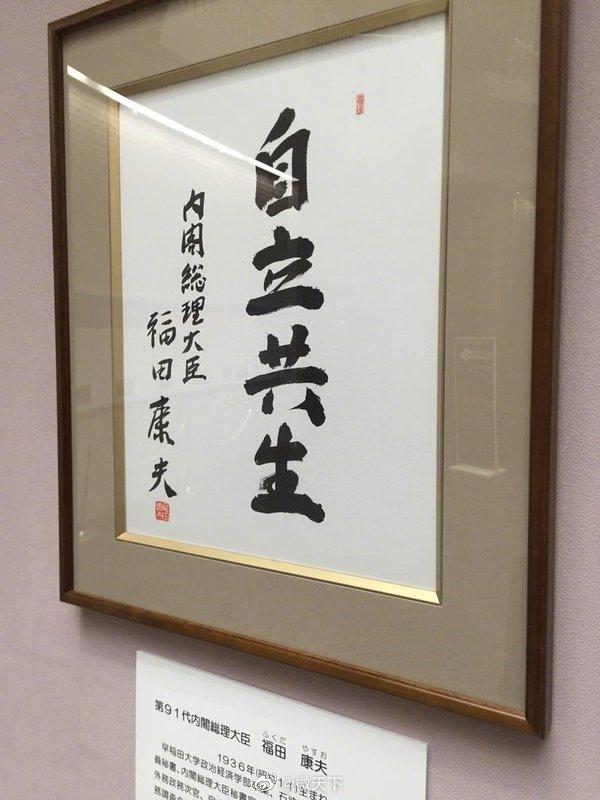 自立共生
内閣総理大臣
福田康夫
第91代内閣総理大臣 福田 康夫
ふくだ やすお
1936年(昭和11)生まれ
早稲田大学政治経済学部卒業、石油
員秘書、内閣総理大臣秘書官
外務政務次官、
務調査会
@微天下